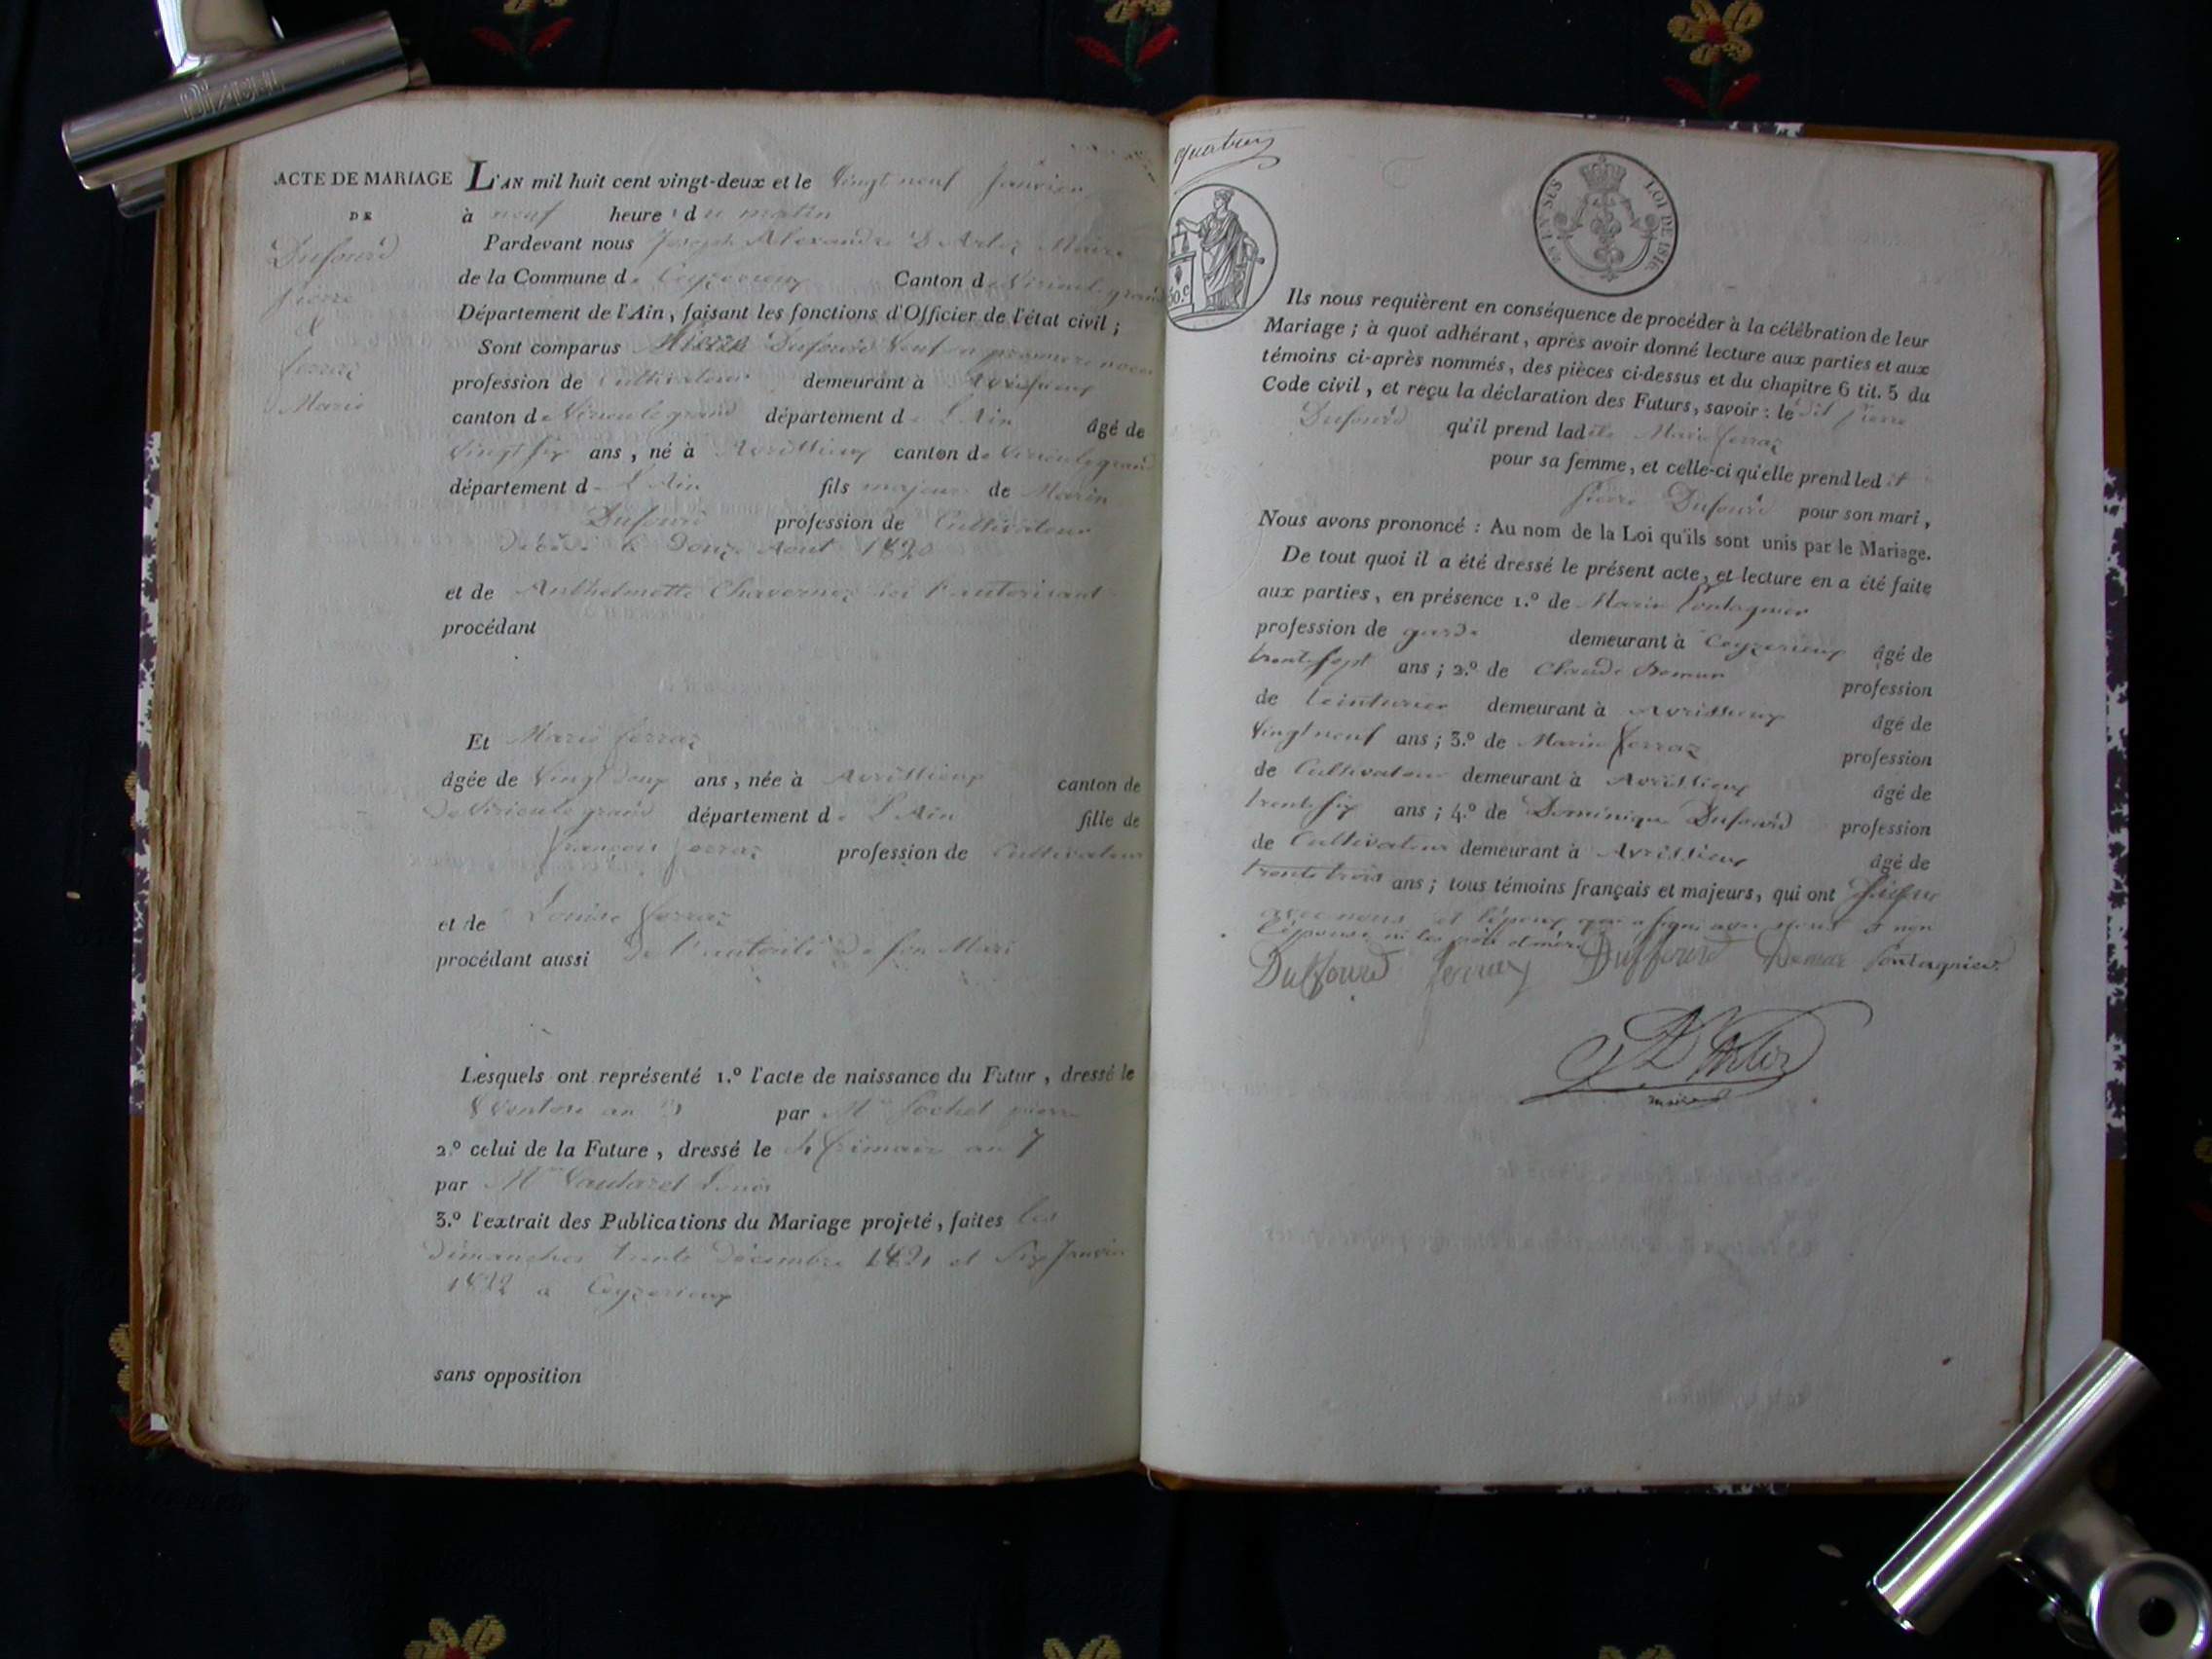 ACTE DE MARIAGE
DE
Dufourd
pierre
&
ferraz
Marie
L'AN mil huit cent vingt-deux et le Vingt neuf Janvier
à neuf heures du matin
Pardevant nous Joseph Alexandre D'Arloz Maire
de la Commune de Ceyzerieux Canton de Virieulegrand
Département de l'Ain, faisant les fonctions d'Officier de l'état civil ;
Sont comparus Pierre Dufourd Veuf premiere noce
profession de Cultivateur demeurant à Avrissieux
canton de Virieulegrand département de L'Ain âgé de
Vingt six ans, né à Avrissieux canton de Virieulegrand
département de L'Ain fils majeur de Marin
Dufourd profession de Cultivateur
Décédé le Douze Aout 1820
et de Anthelmette Chavernoz ici l'autorisant
procédant
Et Marie ferraz
âgée de Vingt Deux ans, née à Avrissieux canton de
De Virieulegrand département de L'Ain fille de
françois ferraz profession de Cultivateur
et de Louise ferraz
procédant aussi De l'autorité De son Mari
Lesquels ont représenté 1.º l'acte de naissance du Futur, dressé le
Ventose an par Mr pierre
2.º celui de la Future, dressé le frimaire an 7
par Mr Vautaret
3.º l'extrait des Publications du Mariage projeté, faites les
Dimanches trente Décembre 1821 et Six Janvier
1822 a Ceyzerieux
sans opposition
quatre
50.c
LOI DE 1816.
Ils nous requièrent en conséquence de procéder à la célébration de leur
Mariage ; à quoi adhérant, après avoir donné lecture aux parties et aux
témoins ci-après nommés, des pièces ci-dessus et du chapitre 6 tit. 5 du
Code civil, et reçu la déclaration des Futurs, savoir : le dit pierre
Dufourd qu'il prend ladite Marie ferraz
pour sa femme, et celle-ci qu'elle prend ledit
pierre Dufourd pour son mari,
Nous avons prononcé : Au nom de la Loi qu'ils sont unis par le Mariage.
De tout quoi il a été dressé le présent acte, et lecture en a été faite
aux parties, en présence 1.º de Marin Pontagnier
profession de garde demeurant à Ceyzerieux âgé de
trente sept ans ; 2.º de Claude Demur profession
de teinturier demeurant à Avrissieux âgé de
Vingt neuf ans ; 3.º de Marin ferraz profession
de Cultivateur demeurant à Avrissieux âgé de
trente six ans ; 4.º de Dominique Dufourd profession
de Cultivateur demeurant à Avrissieux âgé de
trente trois ans ; tous témoins français et majeurs, qui ont
avec nous et l'époux qui a signé avec nous et non
l'épouse ni les père et mère
Duffourd ferraz Duffourd Demur Pontagnier
J A D'Arloz
maire